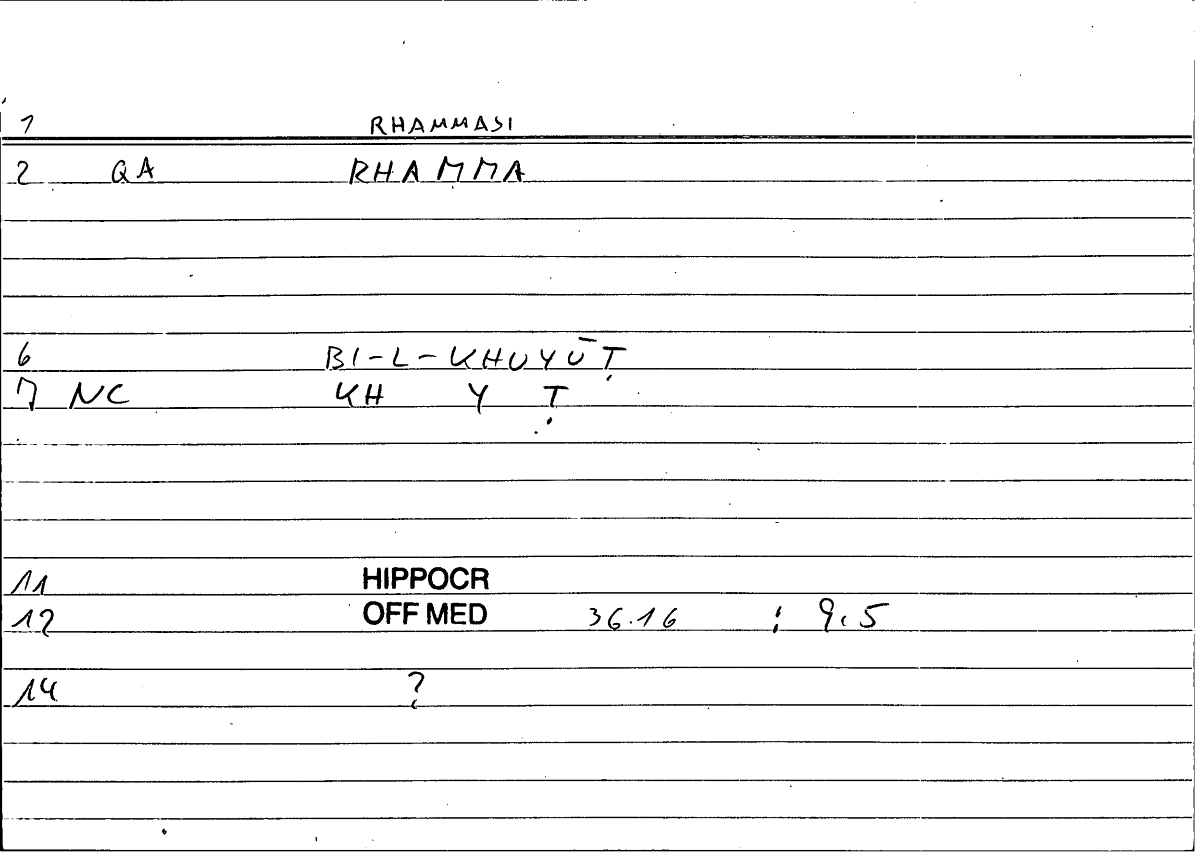 1 RHAMMASI
2 QA RHAMMA
6 BI-L-KHUYŪṬ
7 NC KH Y Ṭ
11 HIPPOCR
12 OFF MED 36.16 : 9.5
14 ?